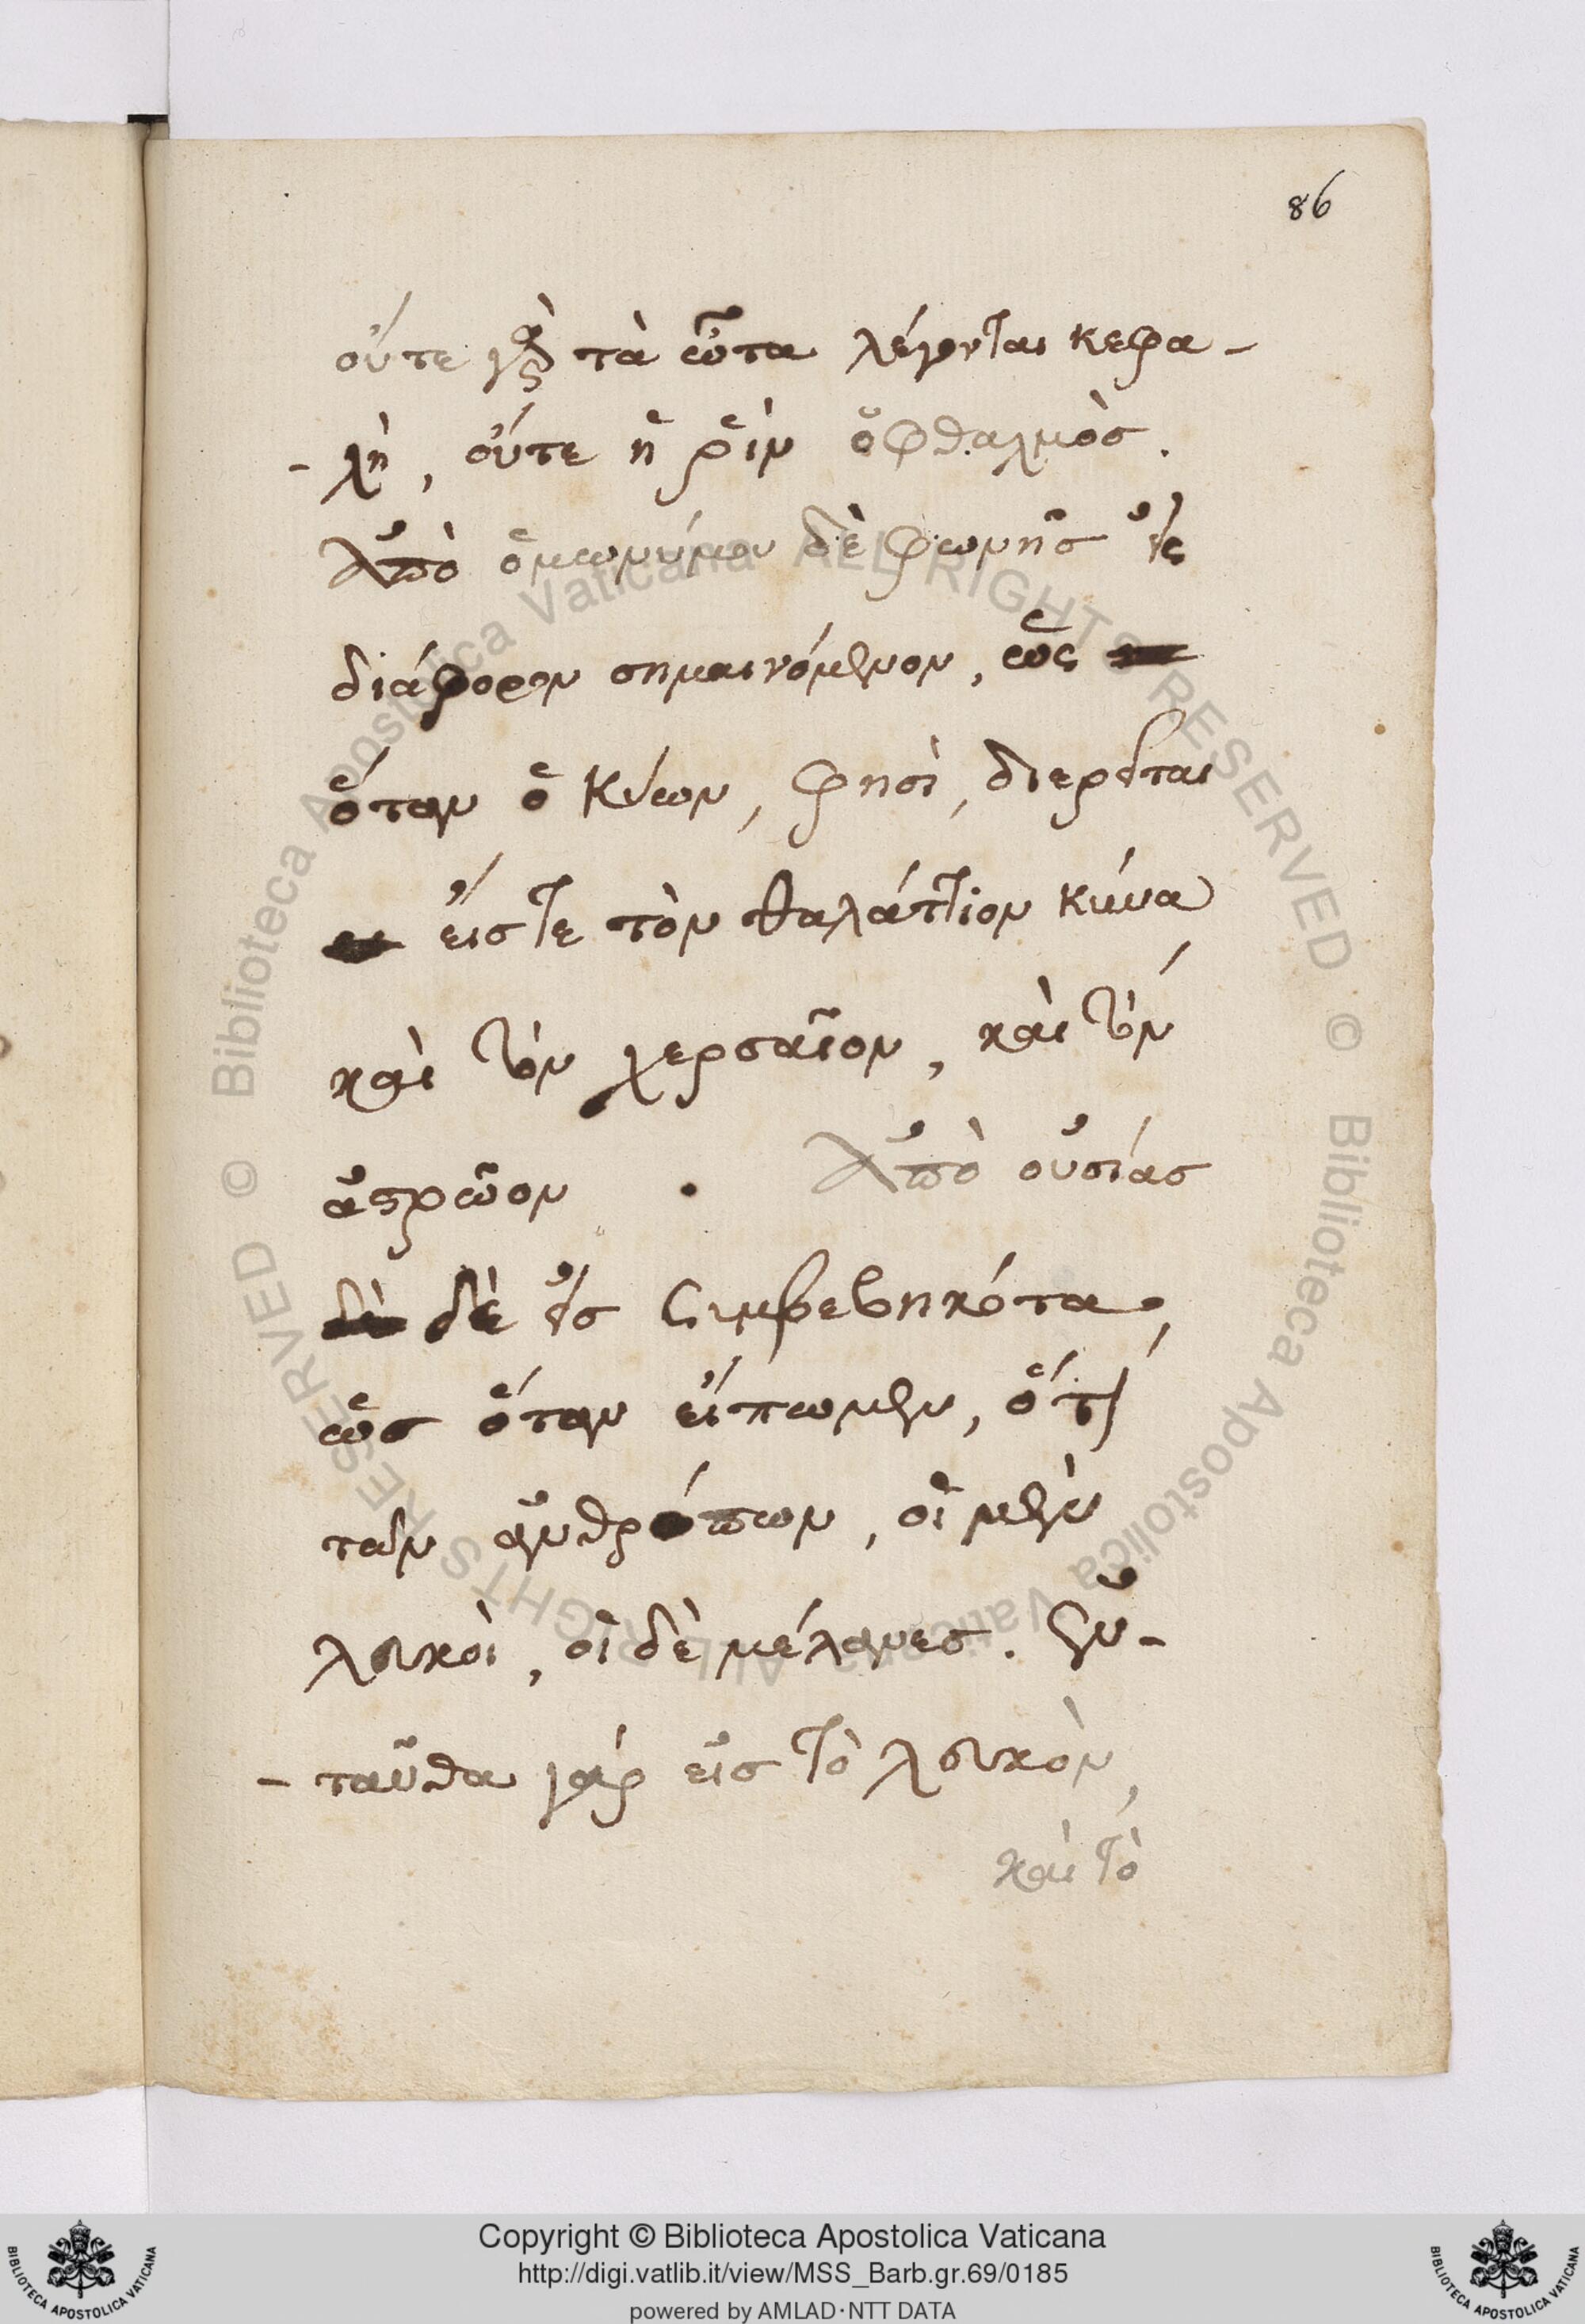 86
οὔτε γὰρ τὰ ὦτα λέγονται κεφα-
-λὴ, οὔτε ἡ ῥὶν ὀφθαλμὸς.
Ἀπὸ ὁμωνύμου δὲ φωνῆς εἰς
διάφορον σημαινόμενον, ὡς
ὅταν ὁ κύων, φησὶ, διερεῖται
εἴς τε τὸν θαλάττιον κύνα,
καὶ τὸν χερσαῖον, καὶ τὸν
ἀστρῶον . Ἀπὸ οὐσίας
δὲ εἰς συμβεβηκότα,
ὡς ὅταν εἴπωμεν, ὅτι
τῶν ἀνθρώπων, οἱ μὲν
λευκοὶ, οἱ δὲ μέλανες. ἐν-
-ταῦθα γὰρ εἰς τὸ λευκὸν,
καὶ τὸ
© Biblioteca Apostolica Vaticana ALL RIGHTS RESERVED © Biblioteca Apostolica Vaticana ALL RIGHTS RESERVED
Copyright © Biblioteca Apostolica Vaticana
http://digi.vatlib.it/view/MSS_Barb.gr.69/0185
powered by AMLAD·NTT DATA
BIBLIOTECA APOSTOLICA VATICANA
BIBLIOTECA APOSTOLICA VATICANA